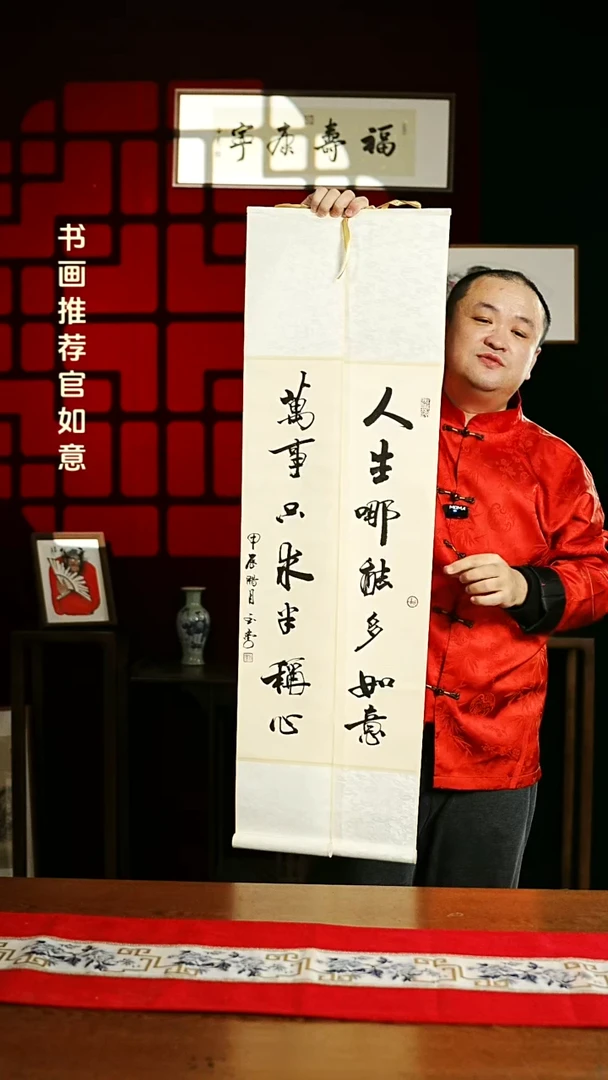 福壽康宁
书画推荐官如意
人生哪能多如意
萬事只求半稱心
甲辰